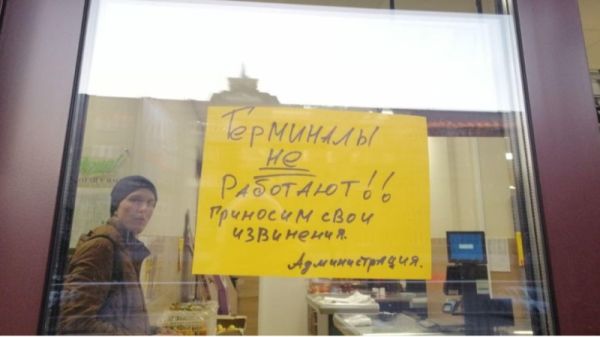 Терминалы
не
работают!!
приносим свои
извинения.
Администрация.